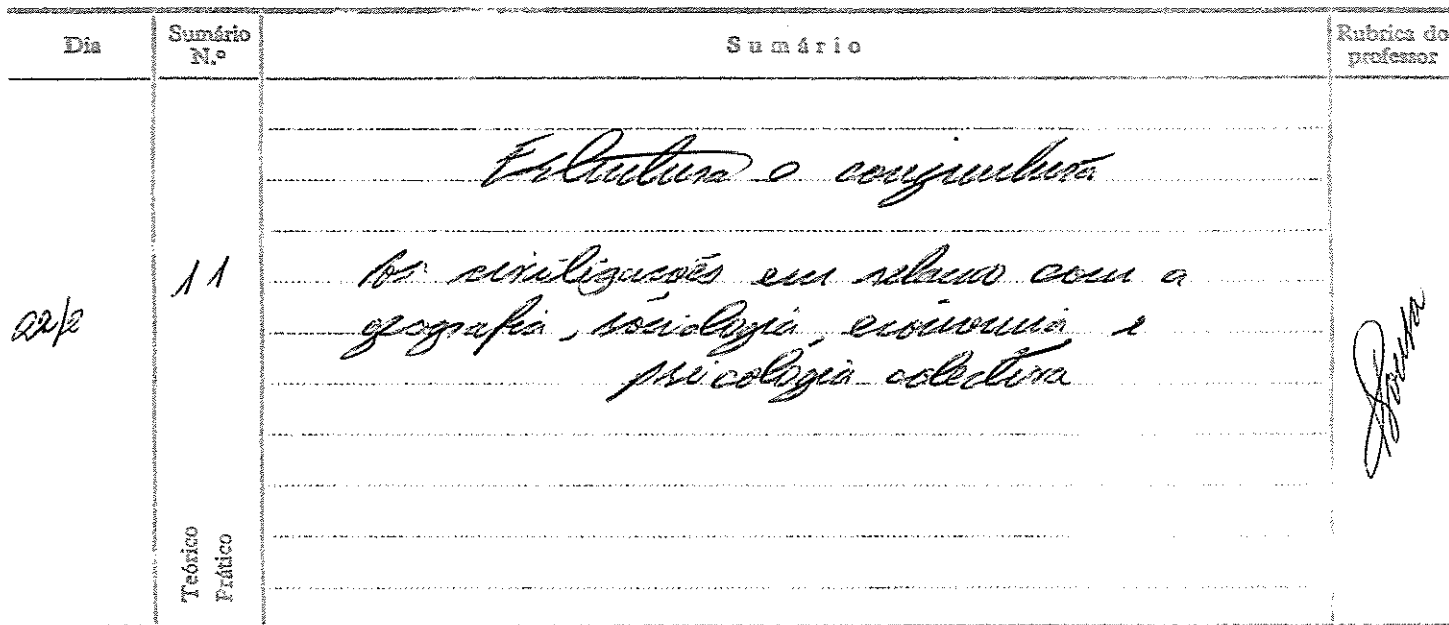 Dia
Sumário N.º
Sumário
Rubrica do professor
Estrutura e conjuntura
22/2
11
As civilizações em relação com a
geografia, sociologia, economia e
psicologia colectiva
Teórico
Prático